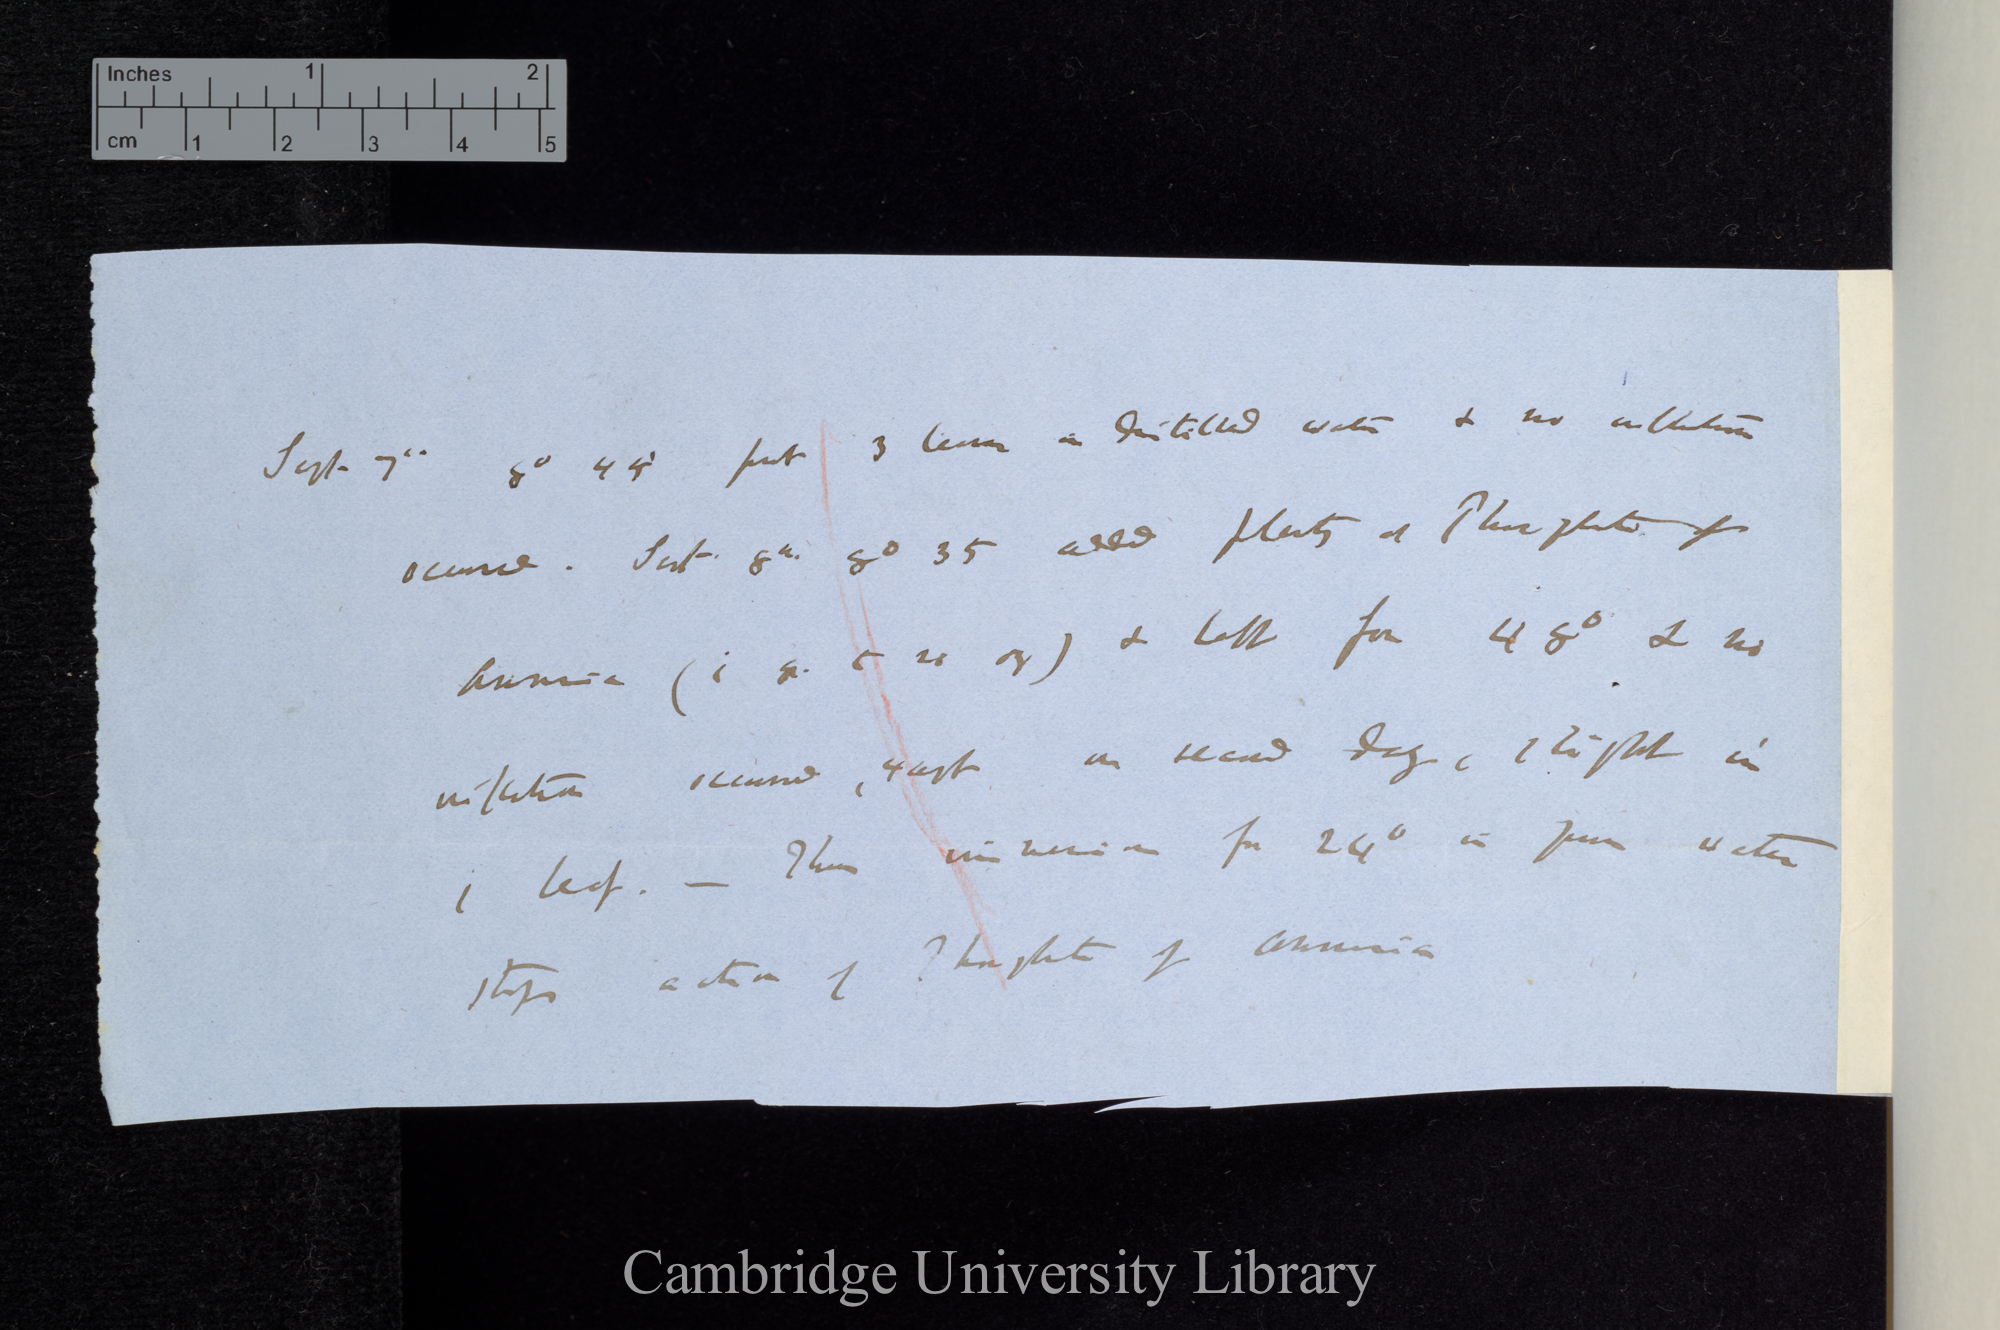 Inches 1 2
cm 1 2 3 4 5
Sept 7th 8° 45' put 3 leaves in distilled water & no inflection
occurred. Sept. 8th. 8° 35 added plenty of Phosphate of
Ammonia (i gr. to 20 oz) & left for 48° & no
inflection occurred, except on second day, slight in
1 leaf. — Thus immersion for 24° in pure water
stops action of Phosphate of Ammonia
Cambridge University Library